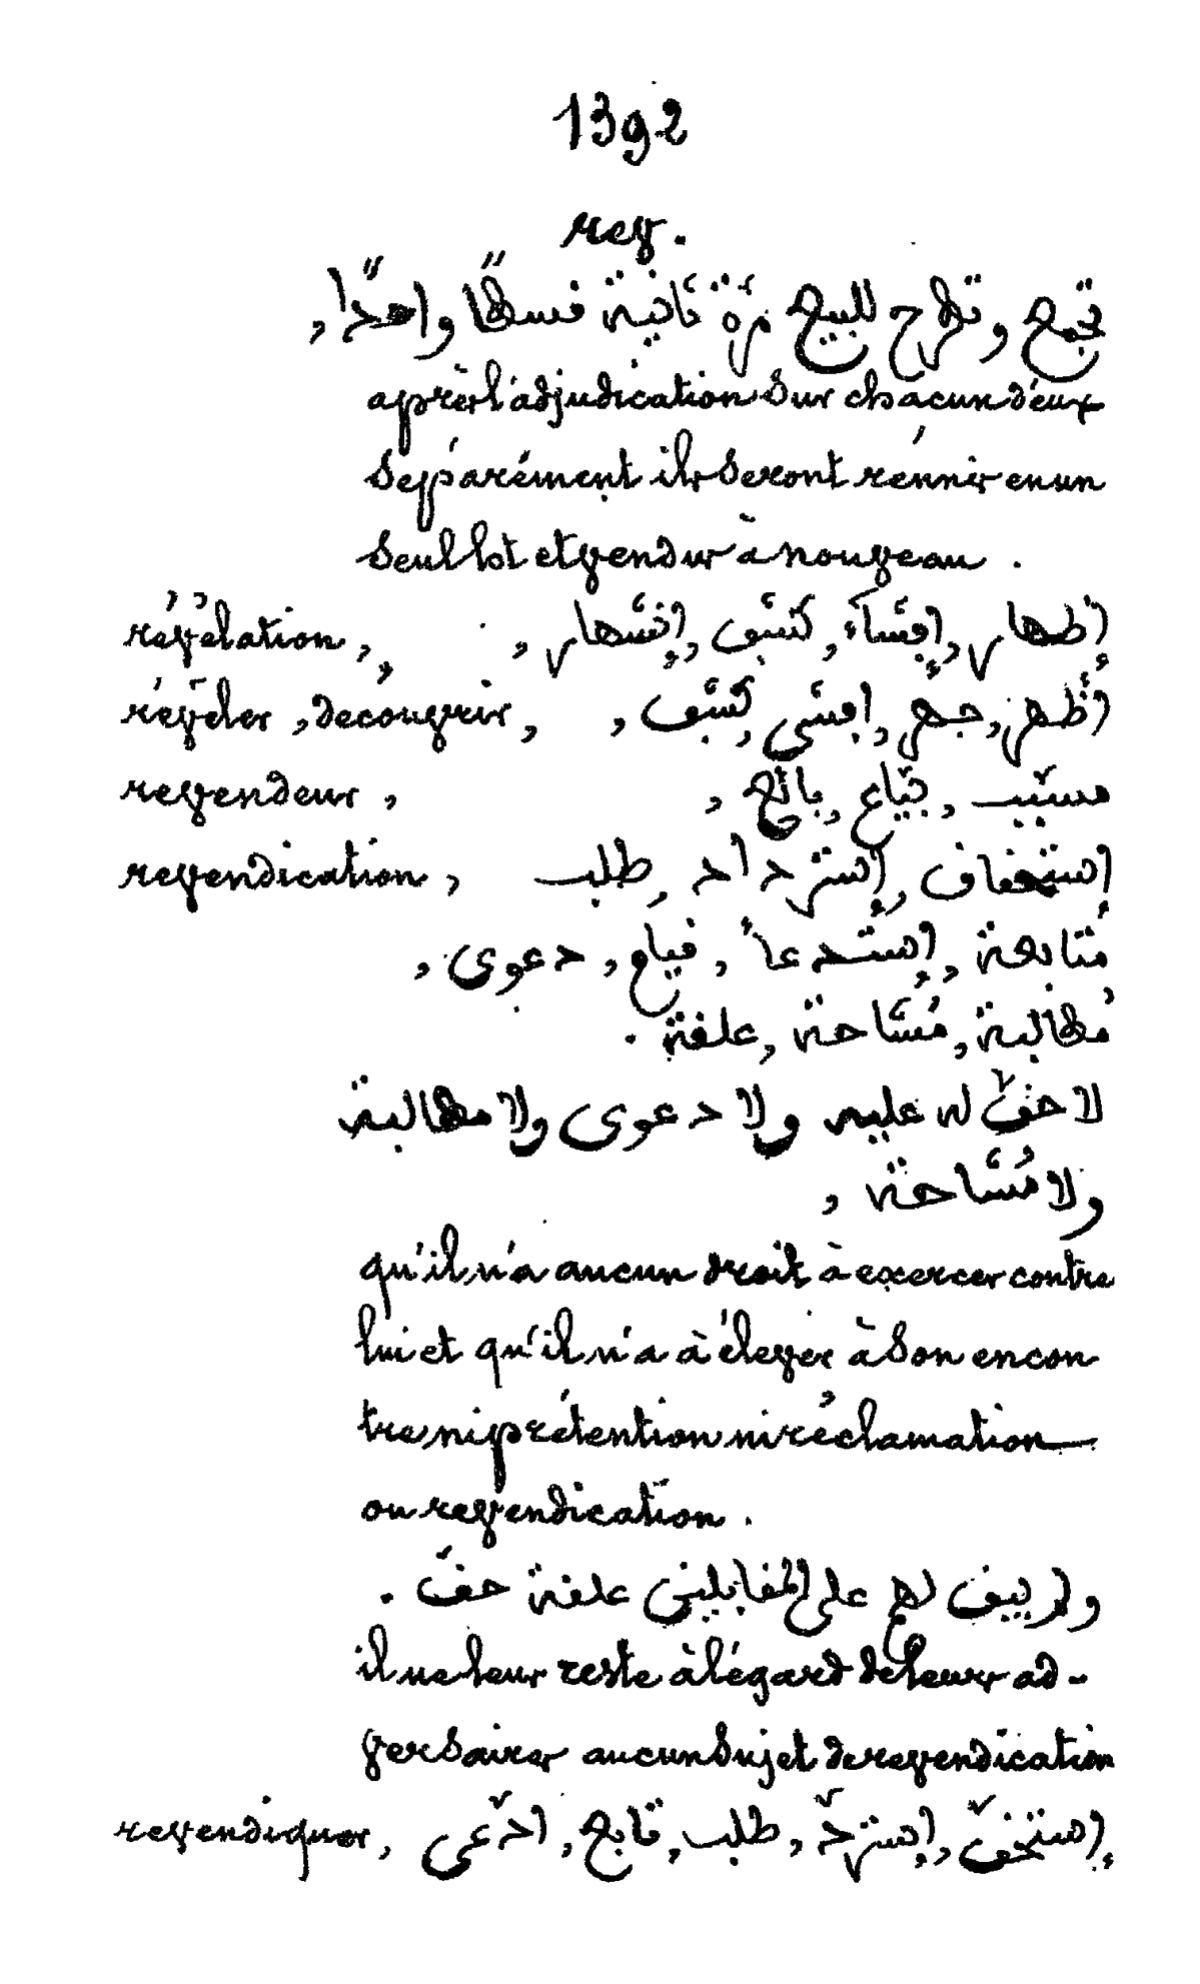 1392
rev.
تجمع وتطرح للبيع مرّة ثانية قسطًا واحدًا,
après l'adjudication sur chacun d'eux
séparément ils seront réunis en un
seul lot et vendus à nouveau.
révélation, إظهار, إفشاء, كشف, إشهار,
révéler, découvrir, أظهر, جهر, افشى, كشف,
revendeur, مسبّب, بيّاع, بائع,
revendication, إستحقاق, إسترداد, طلب
متابعة, إستدعاء, قيام, دعوى,
مُطالبة, مُشَاحة, علقة.
لا حقّ له عليه ولا دعوى ولا مطالبة
ولا مُشَاحة,
qu'il n'a aucun droit à exercer contre
lui et qu'il n'a à élever à son encon
tre ni prétention ni réclamation
ou revendication.
ولم يبق لهم على المقابلين علقة حقّ.
il ne leur reste à l'égard de leurs ad-
versaires aucun sujet de revendication
revendiquer, إستحقّ, إستردّ, طلب, تابع, ادّعى